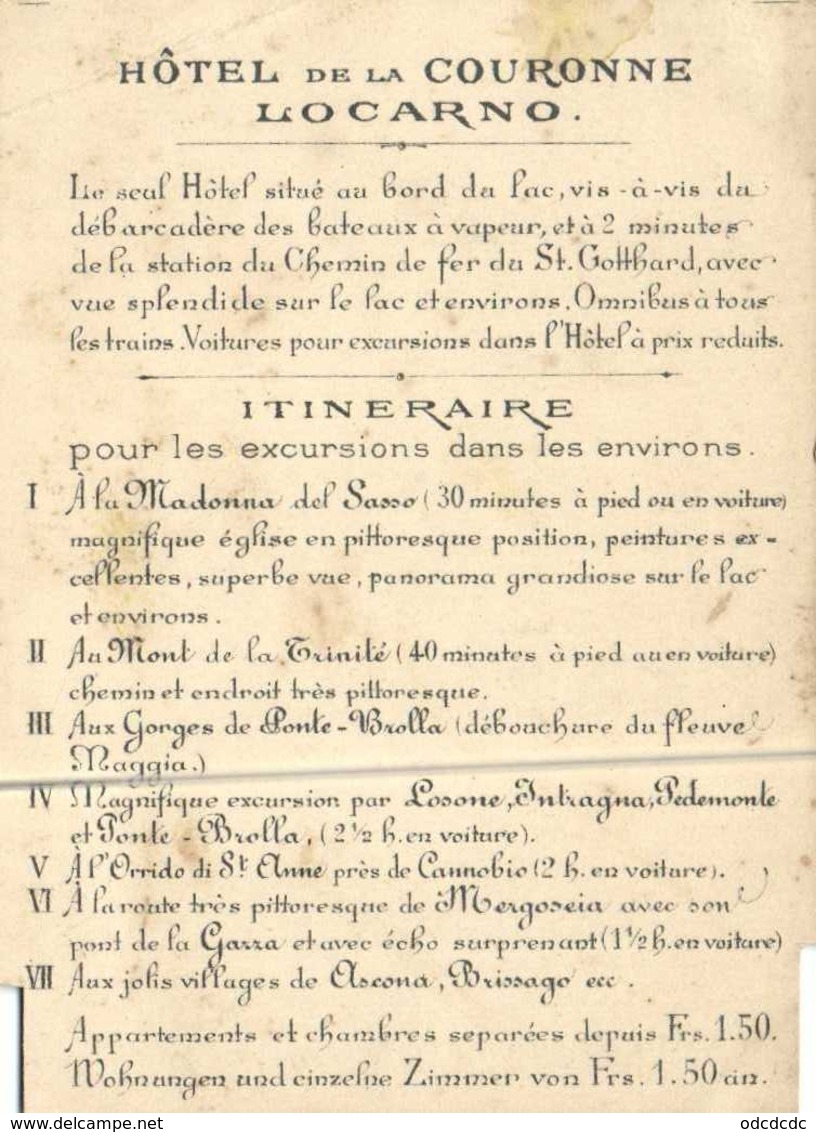 HÔTEL DE LA COURONNE
LOCARNO.
Le seul Hôtel situé au bord du lac, vis-à-vis du
débarcadère des bateaux à vapeur, et à 2 minutes
de la station du Chemin de fer du St. Gotthard, avec
vue splendide sur le lac et environs. Omnibus à tous
les trains. Voitures pour excursions dans l'Hôtel à prix reduits.
ITINERAIRE
pour les excursions dans les environs.
I À la Madonna del Sasso (30 minutes à pied ou en voiture)
magnifique église en pittoresque position, peintures ex-
cellentes, superbe vue, panorama grandiose sur le lac
et environs.
II Au Mont de la Trinité (40 minutes à pied ou en voiture)
chemin et endroit très pittoresque.
III Aux Gorges de Ponte-Brolla (débouchure du fleuve
Maggia.)
IV Magnifique excursion par Losone, Intragna, Pedemonte
et Ponte-Brolla, (2 1/2 h. en voiture).
V À l'Orrido di St. Anne près de Cannobio (2 h. en voiture).
VI À la route très pittoresque de Mergoscia avec son
pont de la Garra et avec écho surprenant (1 1/2 h. en voiture)
VII Aux jolis villages de Ascona, Brissago ecc.
Appartements et chambres separées depuis Frs. 1.50.
Wohnungen und einzelne Zimmer von Frs. 1.50 an.
delcampe.net
odcdcdc